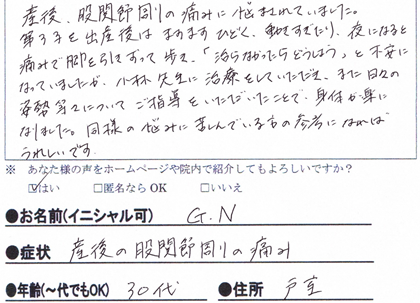 産後、股関節周りの痛みに悩まされていました。
第3子を出産後はますますひどく、動けずだったり、夜になると
痛みで脚を引きずって歩き、「治らなかったらどうしよう」と不安に
なっていましたが、小林先生に治療をしていただき、また日々の
姿勢等々についてご指導をいただいたことで、身体が楽に
なりました。同様の悩みに苦しんでいる方の参考になれば
うれしいです。
※ あなた様の声をホームページや院内で紹介してもよろしいですか?
☑はい □匿名なら OK □いいえ
●お名前(イニシャル可) G.N
●症状 産後の股関節周りの痛み
●年齢(〜代でもOK) 30代 ●住所 戸室